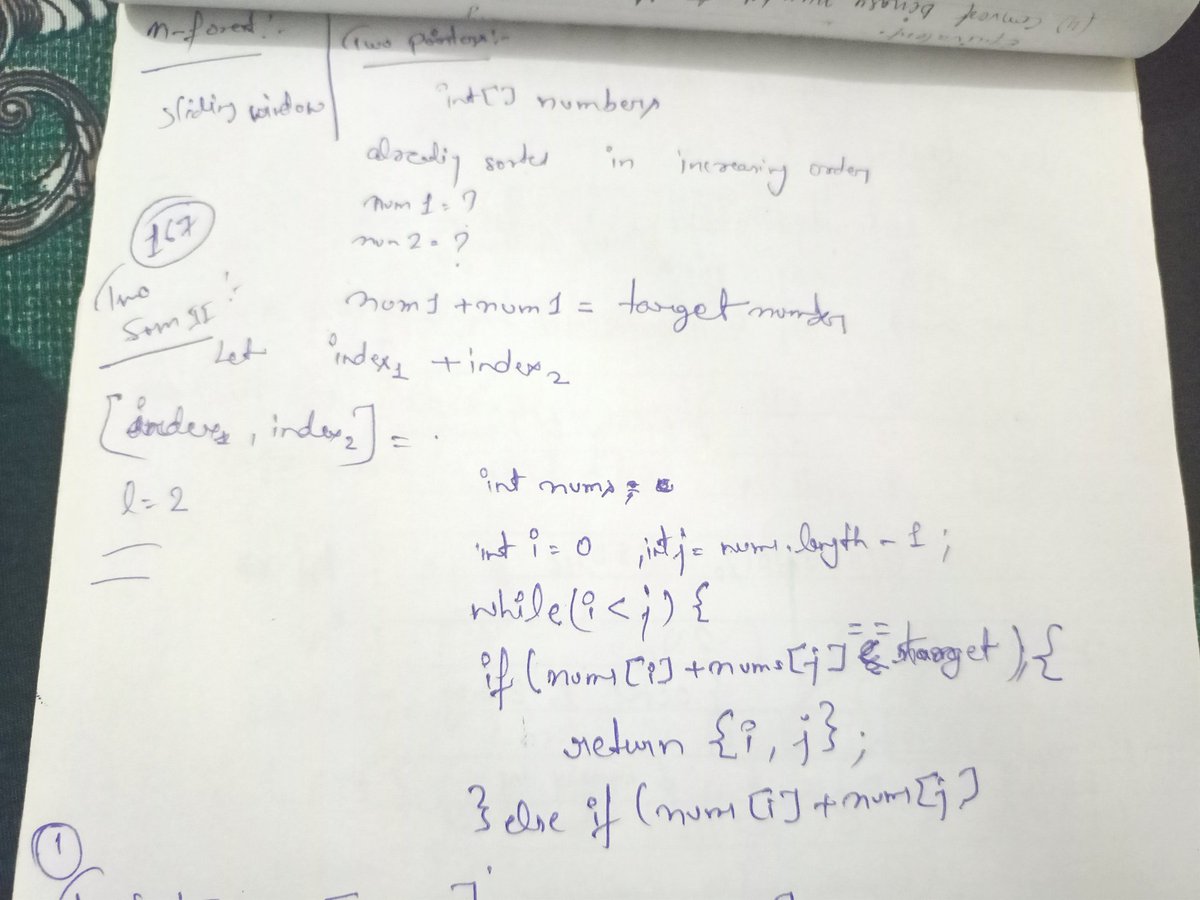 Two pointers:-
sliding window
int[] numbers
already sorted in increasing order
167
num 1 = ?
num 2 = ?
Two
Sum II :-
num1 + num1 = target number
Let index1 + index2
[index1, index2] = .
l = 2
int nums;
int i = 0 , int j = nums.length - 1 ;
while (i < j) {
if (nums[i] + nums[j] == target) {
return {i, j};
} else if (nums[i] + nums[j]
1